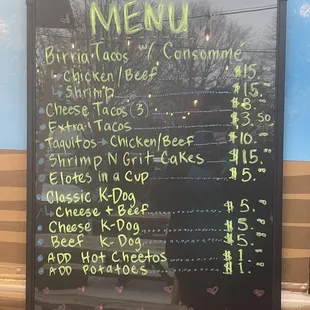 MENU
Birria Tacos w/ Consomme
↳ Chicken/Beef $15.--
↳ Shrimp $15.--
Cheese Tacos (3) $8.--
Extra Tacos $3.50
Taquitos - Chicken/Beef $10.--
Shrimp N Grit Cakes $15.--
Elotes in a Cup $5.--
Classic K-Dog
↳ Cheese + Beef $5.--
Cheese K-Dog $5.--
Beef K-Dog $5.--
ADD Hot Cheetos $1.--
ADD Potatoes $1.--